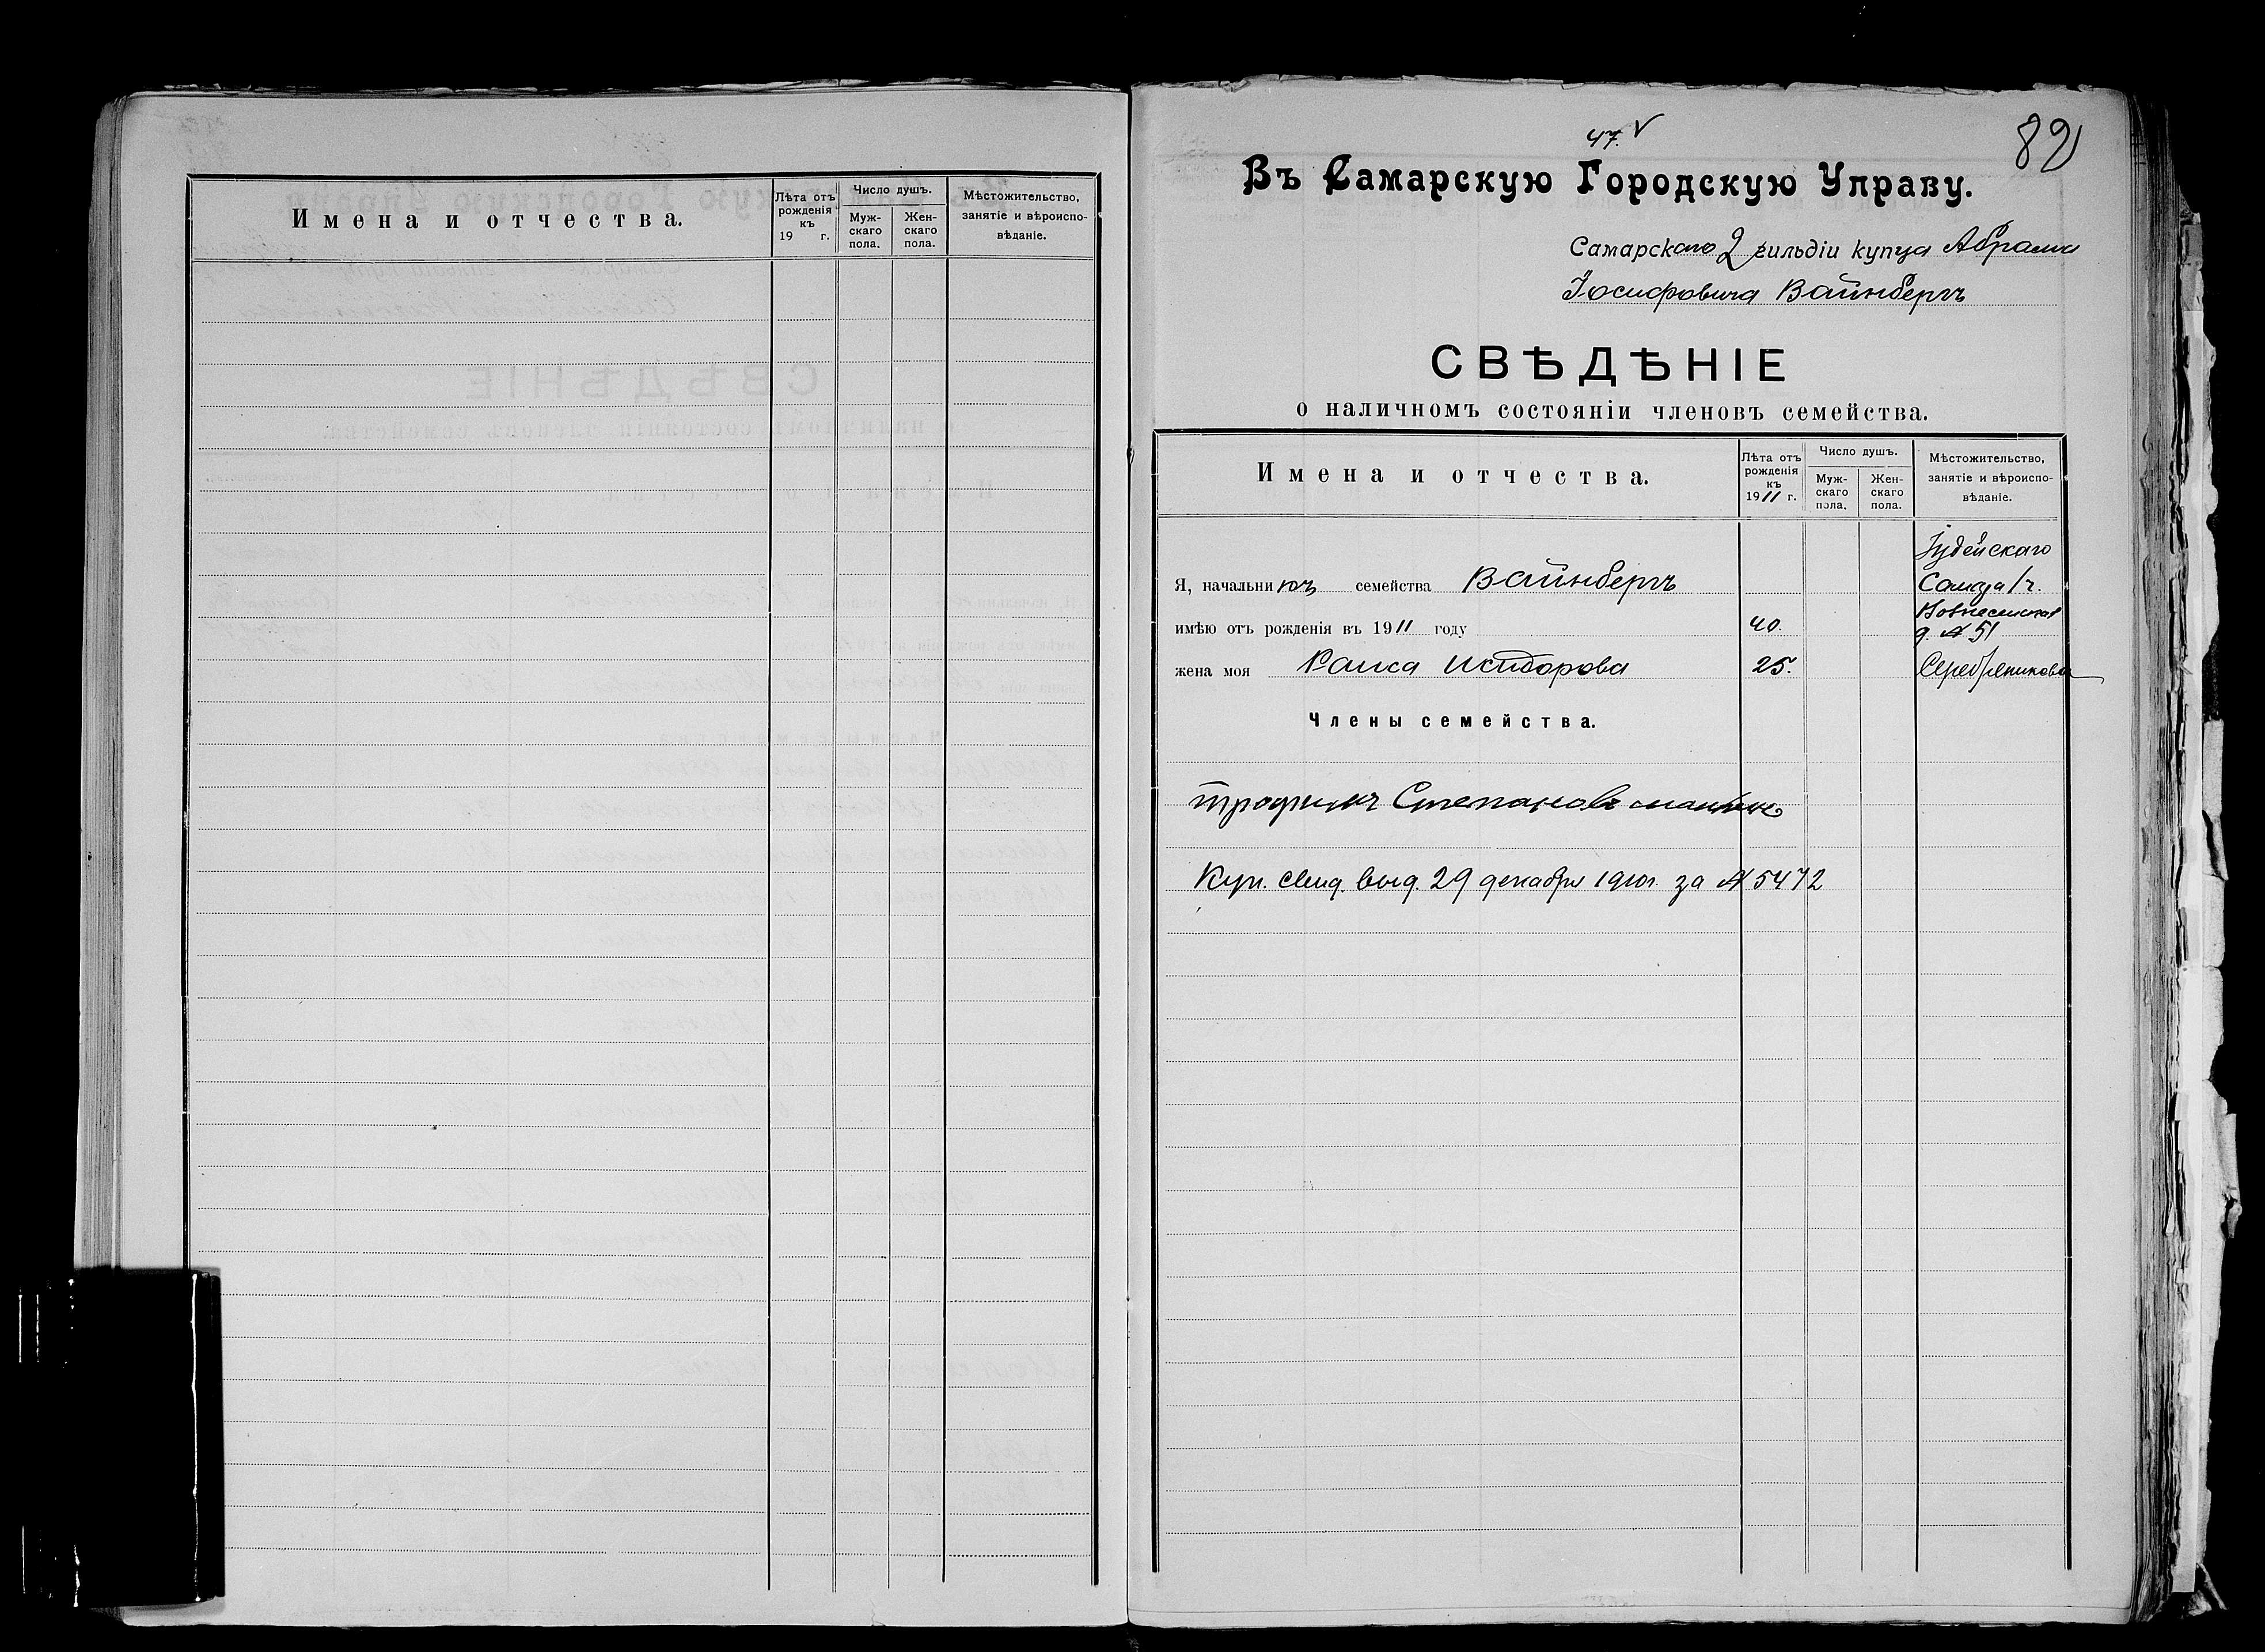 Имена и отчества.
Лѣта отъ рожденія къ 19 г.
Число душъ.
Мужскаго пола.
Женскаго пола.
Мѣстожительство, занятіе и вѣроисповѣданіе.
47. V
82
Въ Самарскую Городскую Управу.
Самарскаго 2 гильдіи купца Абрама
Іосифовича Вайнбергъ
СВѢДѢНІЕ
о наличномъ состояніи членовъ семейства.
Имена и отчества.
Лѣта отъ рожденія къ 1911 г.
Число душъ.
Мужскаго пола.
Женскаго пола.
Мѣстожительство, занятіе и вѣроисповѣданіе.
Іудейскаго
Я, начальникъ семейства Вайнбергъ
Самара 1 ч.
Вознесенская
имѣю отъ рожденія въ 1911 году 40.
д. № 51
жена моя Раиса Исидорова 25. Серебренникова
Члены семейства.
Трофимъ Степановъ
Куп. свид. выд. 29 декабря 1910 г. за № 5472